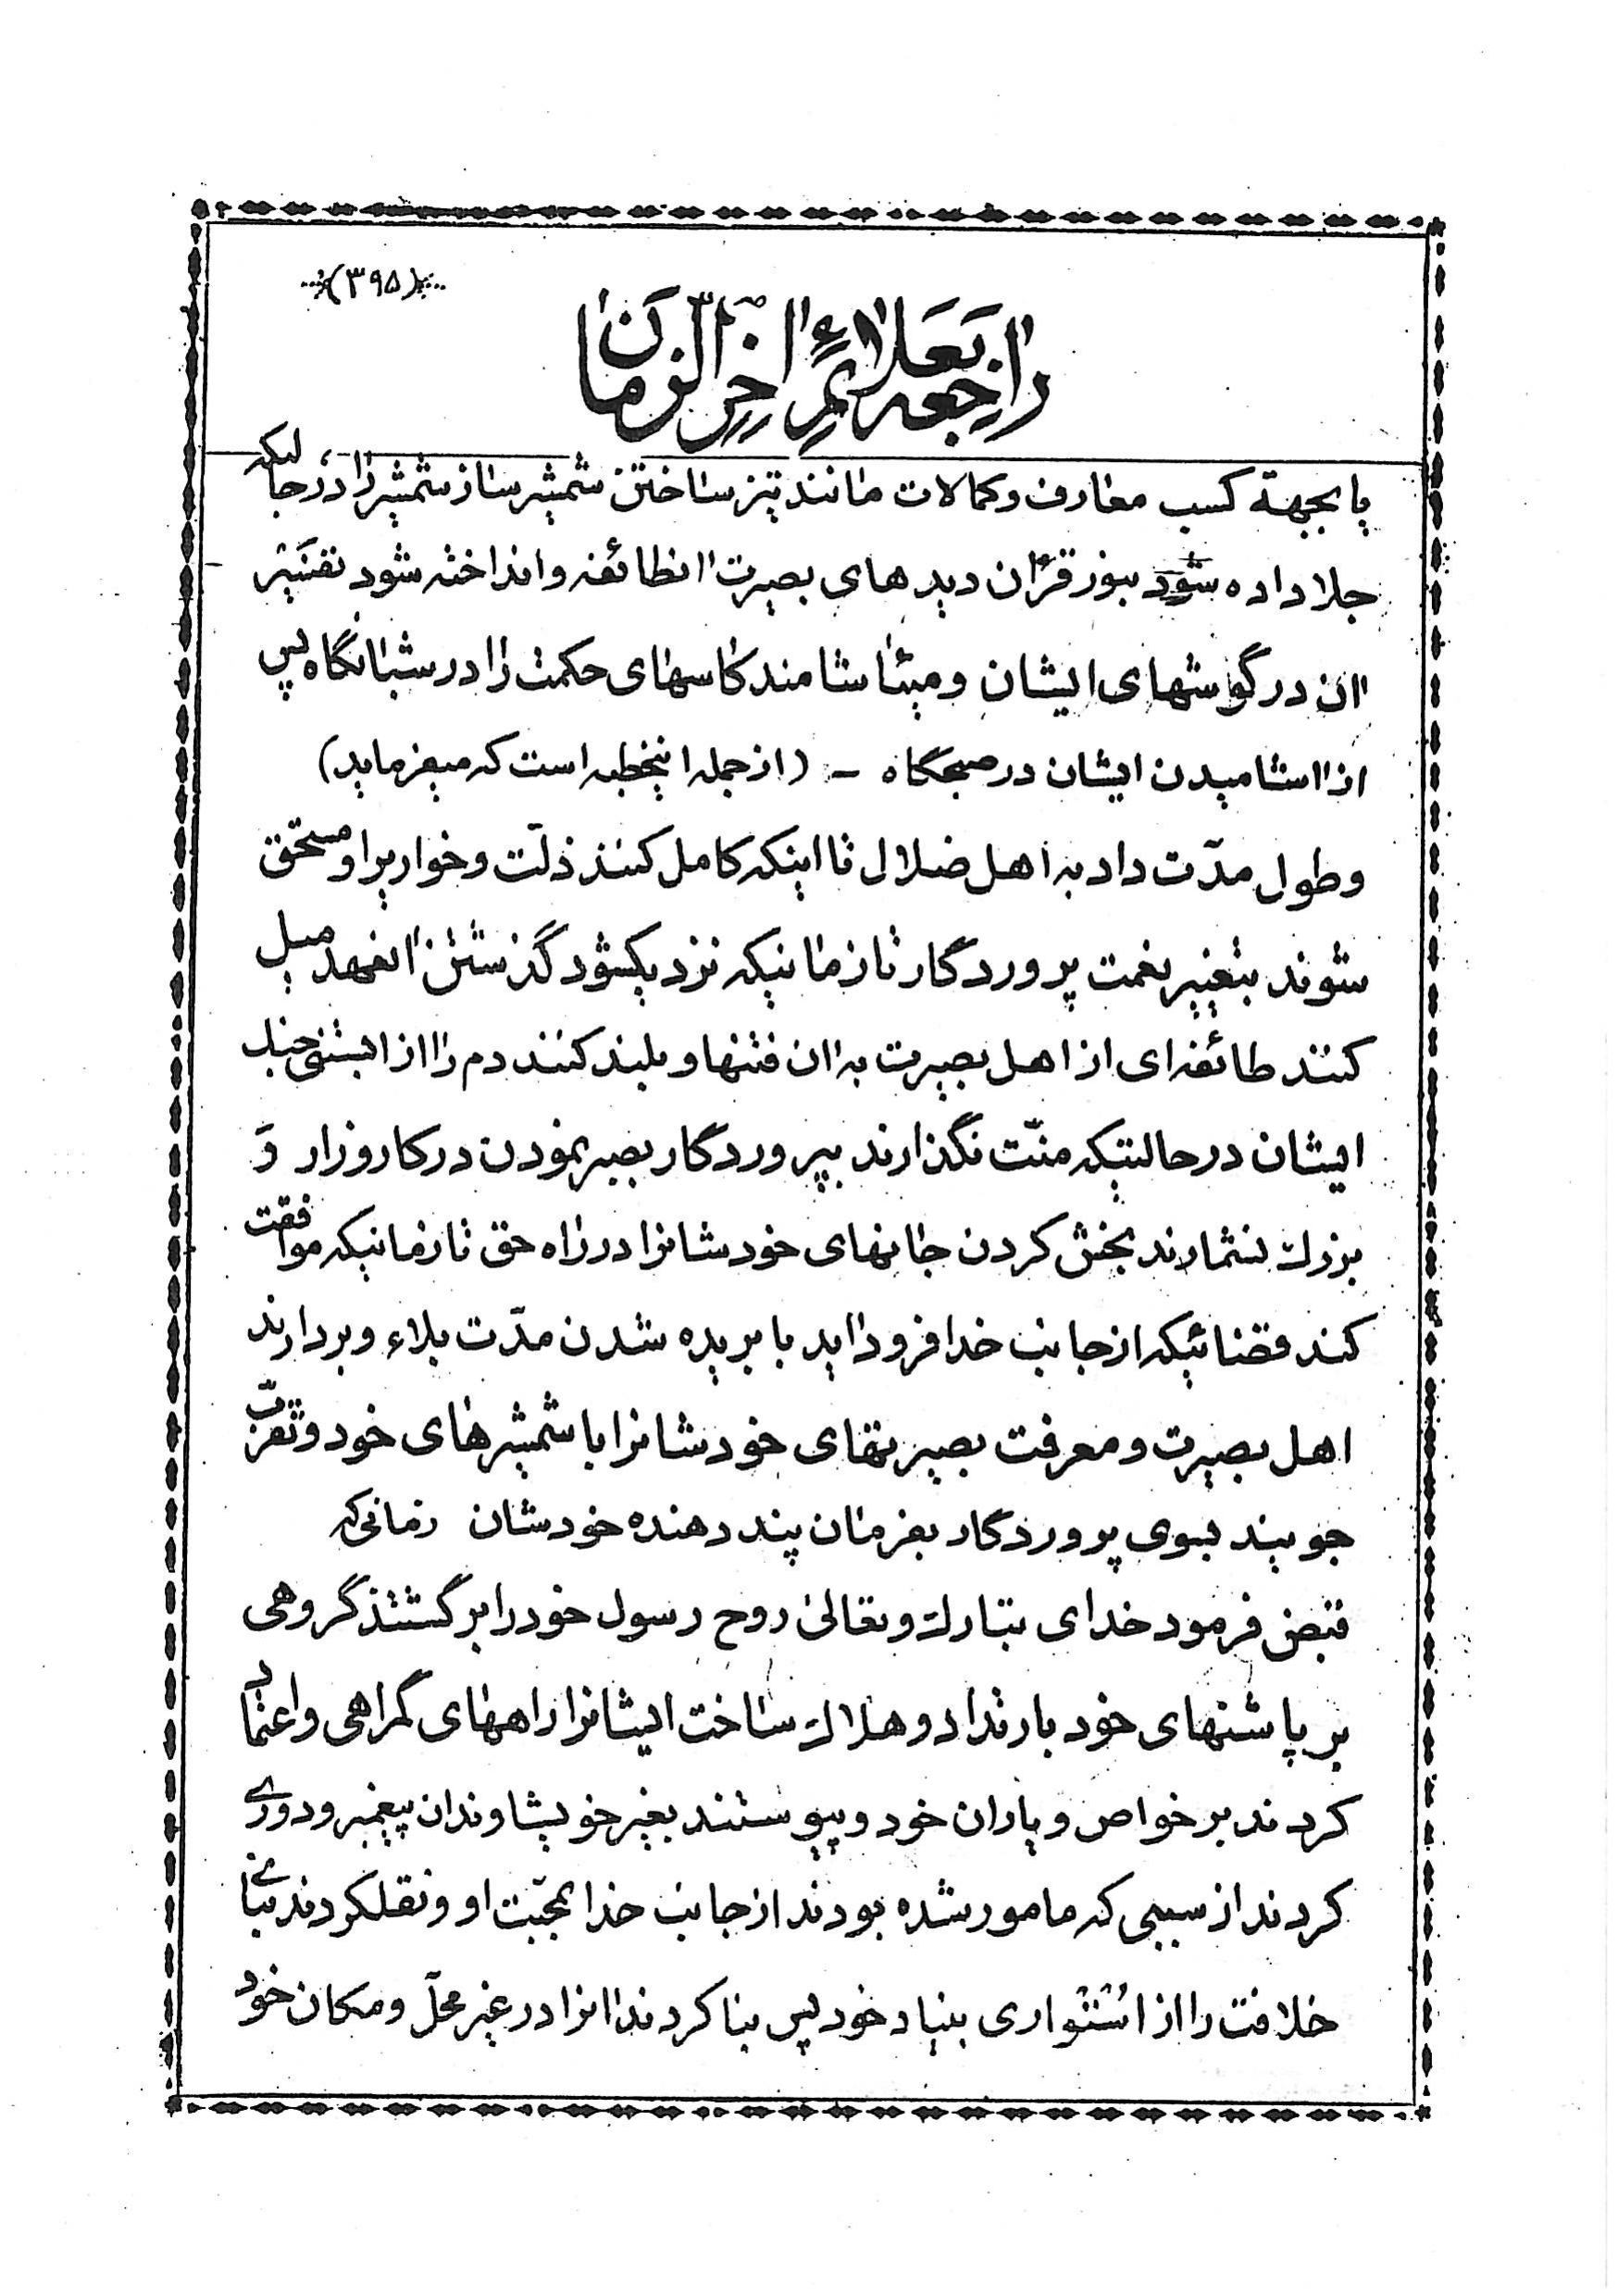 (۳۹۵)
راجعه بعلائم آخر الزمان
یا بجهة کسب معارف وکمالات مانند تیز ساختن شمشیر ساز شمشیر را در حالیکه
جلا داده شود بنور قرآن دیدهای بصیرت آنطائفه و انداخته شود تفسیر
آن در گوشهای ایشان و میآشامند کاسهای حکمت را در شبانگاه پس
از آشامیدن ایشان در صبحگاه – (از جمله اینخطبه است که میفرماید)
وطول مدّت داد به اهل ضلال تا اینکه کامل کنند ذلّت و خواریرا و مستحق
شوند بتغییر نعمت پروردگار تا زمانیکه نزدیکشود گذشتن آنعهد میل
کنند طائفه ای از اهل بصیرت به آن فتنها و بلند کنند دم را از آبستنی جنك
ایشان در حالتیکه منّت نگذارند بپروردگار بصبر نمودن در کارزار وَ
بزرك نشمارند بخش کردن جانهای خودشانرا در راه حق تا زمانیکه موافقت
کند قضائیکه از جانب خدا فرود آید با بریده شدن مدّت بلاء و بردارند
اهل بصیرت و معرفت بصیرتهای خودشانرا با شمشیرهای خود و تقرّب
جویند بسوی پروردگار بفرمان پند دهنده خودشان زمانی که
قبض فرمود خدای تبارك وتعالی روح رسول خود را برگشتند گروهی
بر پاشنهای خود بارتداد و هلاك ساخت ایشانرا راههای گمراهی و اعتماد
کردند بر خواص و یاران خود و پیوستند بغیر خویشاوندان پیغمبر و دوری
کردند از سببی که مامور شده بودند از جانب خدا بمحبّت او و نقلکردند بنای
خلافت را از اُستواری بنیاد خود پس بنا کردند آنرا در غیر محلّ و مکان خود